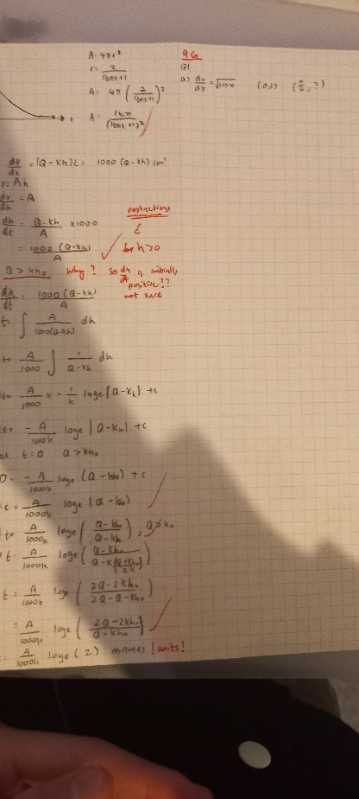 A = 4πr²
r = 2/(10t+1)
A = 4π(2/(10t+1))²
A = 16π/(10t+1)²
9G
a) dy/dx =
dv/dt = (Q-kh)L = 1000(Q-kh) cm³
v = Ah
dv/dh = A
dh/dt = Q-kh/A × 1000
= 1000(Q-kh)/A
restrictions
for h>0
Q > kh₀ why? so dh/dt is initially
positive??
not sure
dh/dt = 1000(Q-kh)/A
t = ∫ A/1000(Q-kh) dh
t = A/1000 ∫ 1/Q-kh dh
t = A/1000 × -1/k loge|Q-kh| + c
t = -A/1000k loge|Q-kh| + c
at t=0 Q>kh₀
0 = -A/1000k loge(Q-kh₀) + c
c = A/1000k loge(Q-kh₀)
t = A/1000k loge(Q-kh₀/Q-kh),
t = A/1000k loge
t = A/1000k loge(2Q-2kh₀/2Q-Q-kh₀)
= A/1000k loge(2Q-2kh₀/Q-kh₀)
= A/1000k loge(2) minutes! units!